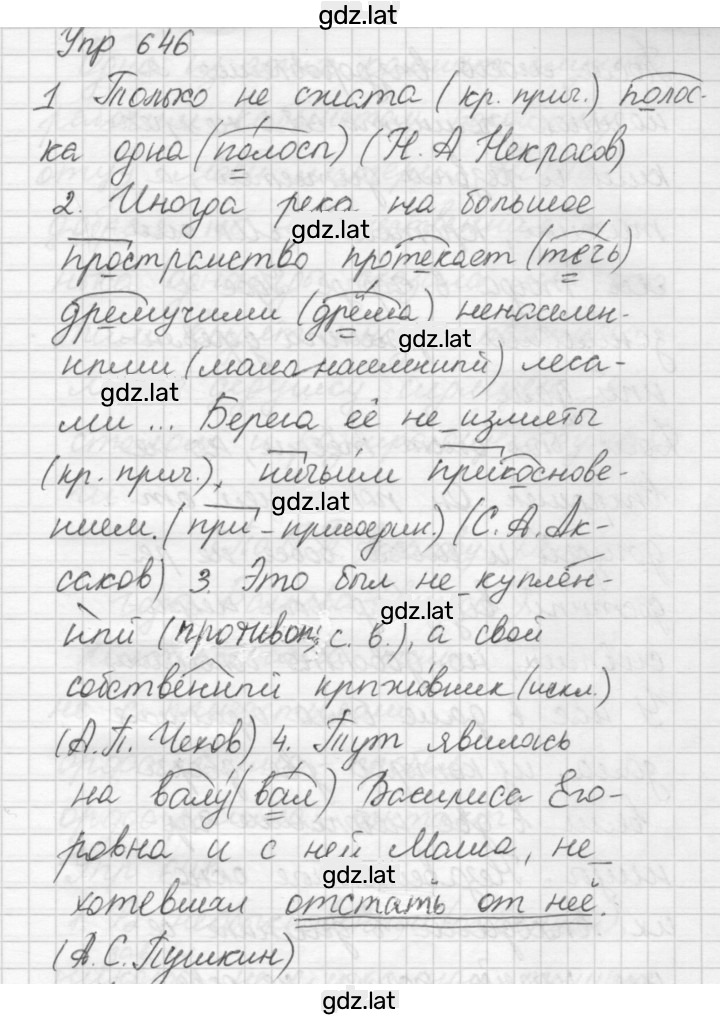 gdz.lat
Упр 646
1 Только не сжата (кр. прич.) полос-
ка одна (полосы) (Н. А. Некрасов)
2. Иногда река на большое
gdz.lat
пространство протекает (течь)
дремучими (дрёма) ненаселен-
gdz.lat
ными (мало населенный) леса-
gdz.lat
ми ... Берега её не_измяты
(кр. прич.), ничьим прикоснове-
gdz.lat
нием. (при - присоедин.) (С. А. Ак-
саков) 3 Это был не_куплен-
gdz.lat
ный (противоп; с. в.), а свой
собственный крыжовник (искл.)
(А. П. Чехов) 4. Тут явилась
на валу (вал) Василиса Его-
ровна и с ней Маша, не_
gdz.lat
хотевшая отстать от неё.
(А. С. Пушкин)
gdz.lat